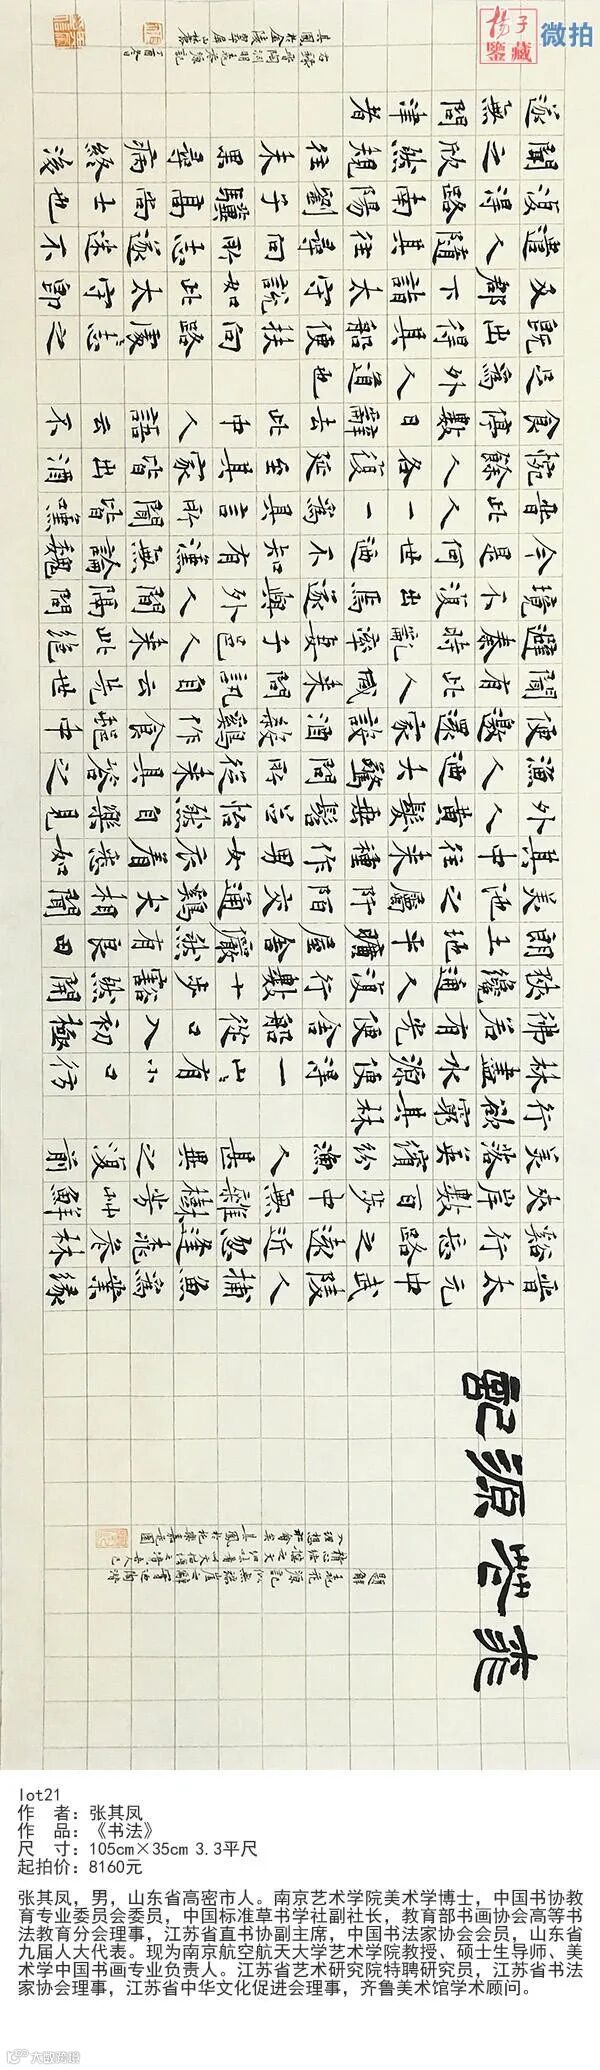 桃花源記
題解
晋太元中武陵人捕魚為業緣
谿行忘路之遠近忽逢桃花林
夾岸數百步中無雜樹芳草鮮
美落英繽紛漁人甚異之復前
行欲窮其林
林盡水源便得一山山有小口彷
彿若有光便舍船從口入初極
狹纔通人復行數十步豁然開
朗土地平曠屋舍儼然有良田
美池之屬阡陌交通雞犬相聞
其中往來種作男女衣着悉如
外人黃髮垂髫並怡然自樂見
漁人迺大驚問所從來具答之
便邀還家設酒殺雞作食村中
聞有此人咸來問訊自云先世
避秦時亂率妻子邑人來此絕
境不復出焉遂與外人間隔問
今是何世迺不知有漢無論魏
晋此人一一為具言所聞皆嘆
惋餘人各復延至其家皆出酒
食停數日辭去此中人語云不
足為外人道也
既出得其船便扶向路處處志之
及郡下詣太守說如此太守即
遣人隨其往尋向所志遂迷不
復得路南陽劉子驥高尚士也
聞之欣然規往未果尋病終後
遂無問津者
右録晋陶淵明桃花源記
其鳳於金陵翠屏山麓
揚子鑒藏
微拍
lot21
作　者：张其凤
作　品：《书法》
尺　寸：105cm×35cm 3.3平尺
起拍价：8160元
张其凤，男，山东省高密市人。南京艺术学院美术学博士，中国书协教
育专业委员会委员，中国标准草书学社副社长，教育部书画协会高等书
法教育分会理事，江苏省直书协副主席，中国书法家协会会员，山东省
九届人大代表。现为南京航空航天大学艺术学院教授、硕士生导师、美
术学中国书画专业负责人。江苏省艺术研究院特聘研究员，江苏省书法
家协会理事，江苏省中华文化促进会理事，齐鲁美术馆学术顾问。
大数跨境